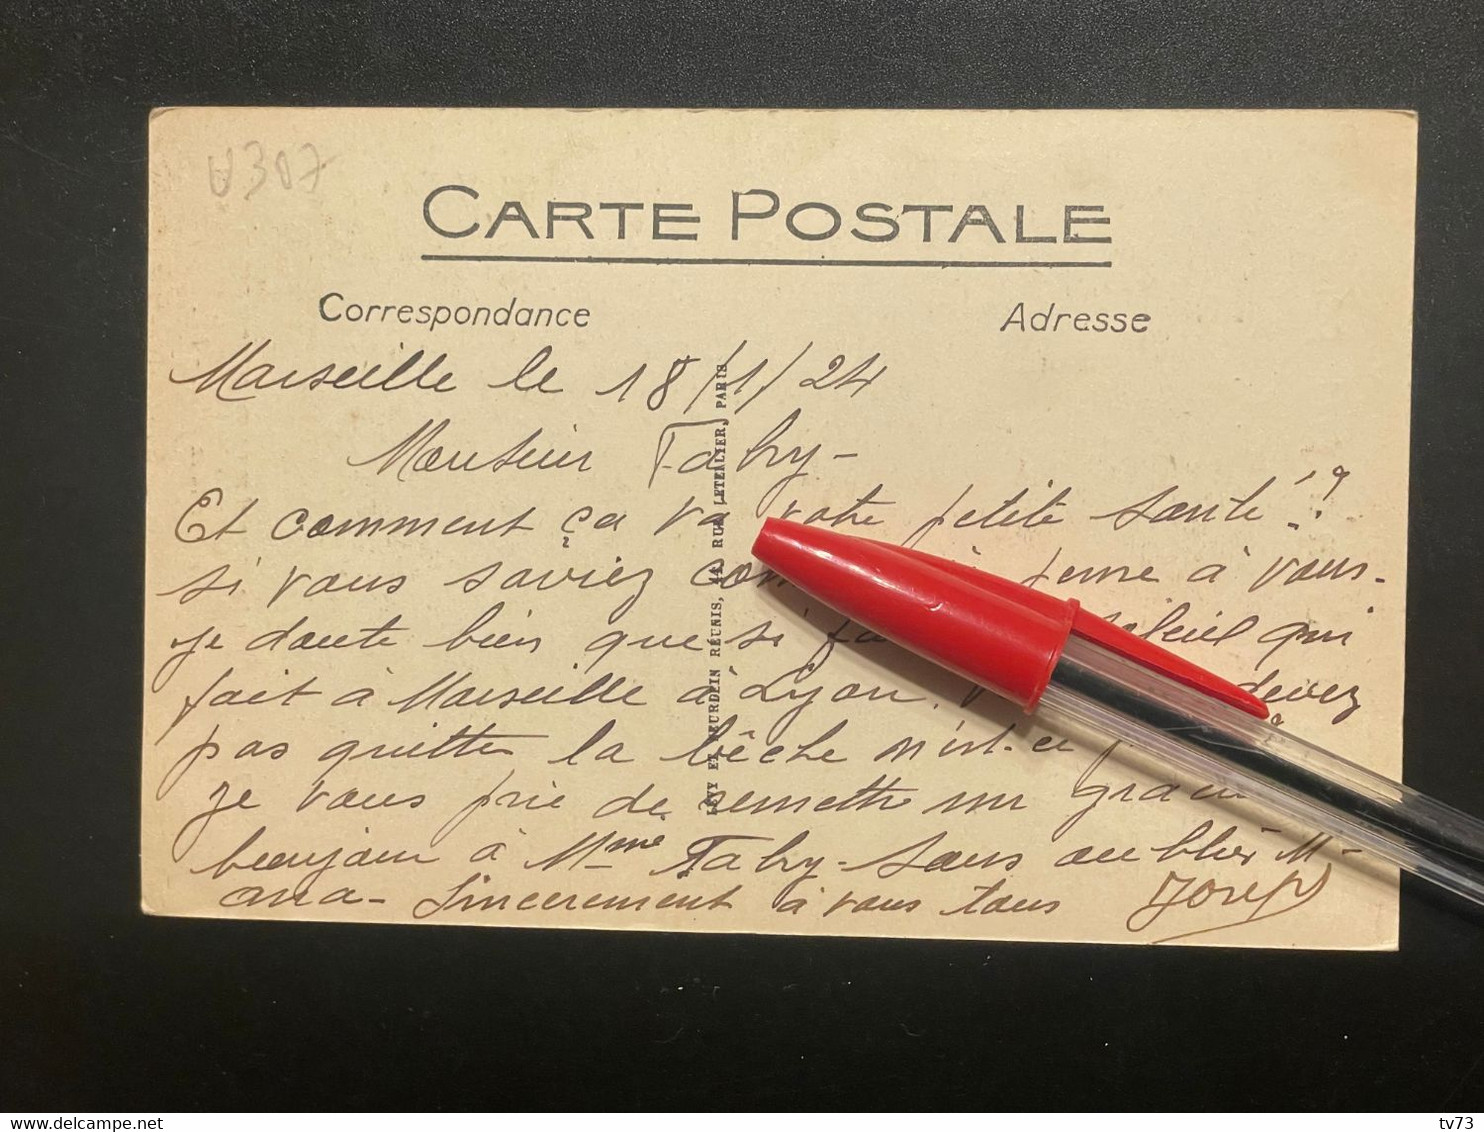 U307
CARTE POSTALE
Correspondance
Adresse
Marseille le 18/1/24
Monsieur Fabry-
Et comment ça va votre petite santé!?
si vous saviez je pense à vous.
je doute bien que si soleil qui
fait à Marseille à Lyon. devez
pas quitter la bêche n'est-ce
Je vous prie de remettre un
bonjour à Mme Fabry-Sans oublier M-
Sincerement à vous tous Joseph
LÉVY ET NEURDEIN RÉUNIS, 44, RUE LETELLIER, PARIS
tv73